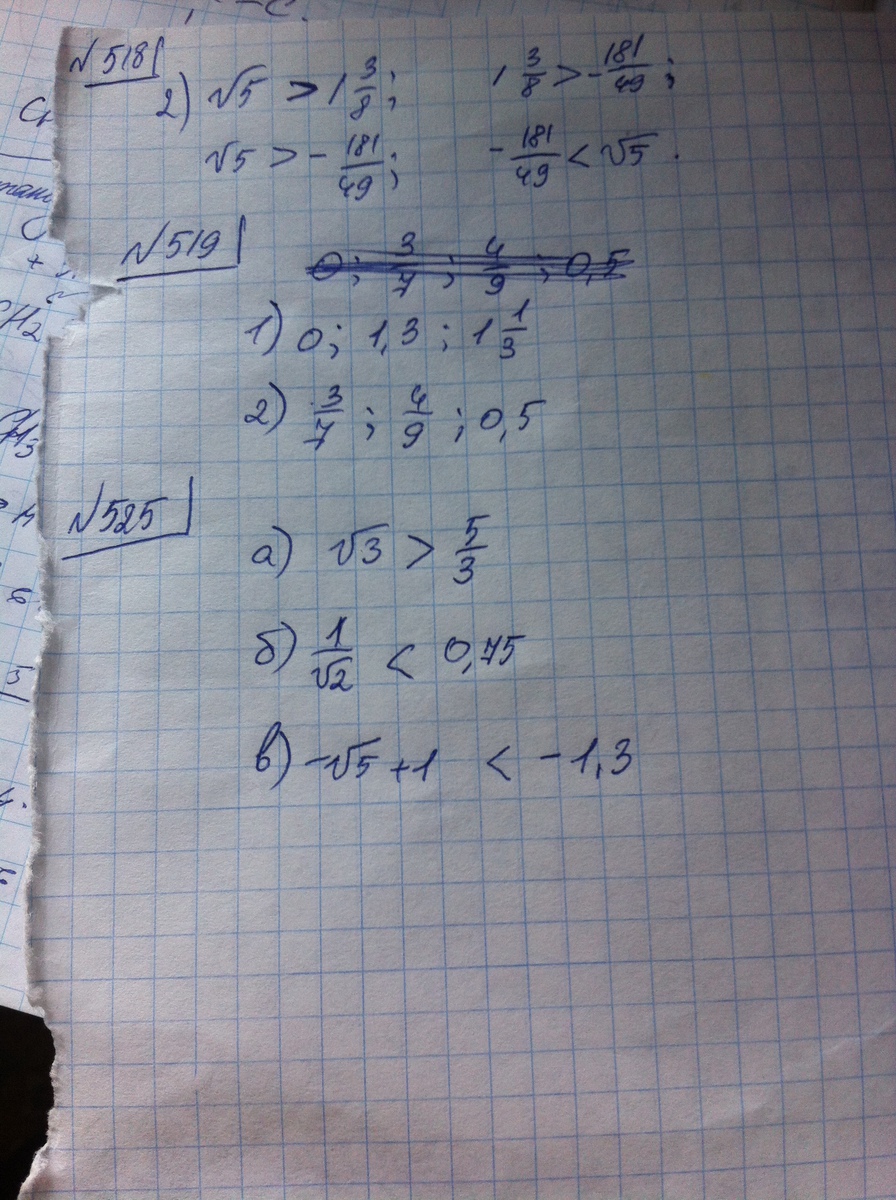 №518
2) √5 > 1 3/8; 1 3/8 > -181/49;
√5 > -181/49; -181/49 < √5.
№519
0; 3/7; 4/9; 0,5
1) 0; 1,3; 1 1/3
2) 3/7; 4/9; 0,5
№525
а) √3 > 5/3
б) 1/√2 < 0,75
в) -√5 + 1 < -1,3